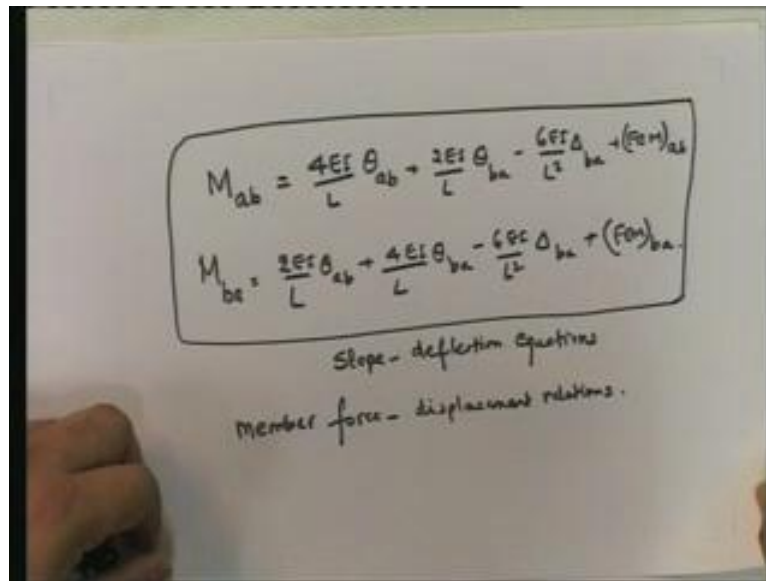 M_ab = 4EI/L θ_ab + 2EI/L θ_ba - 6EI/L² Δ_ba + (FEM)_ab
M_ba = 2EI/L θ_ab + 4EI/L θ_ba - 6EI/L² Δ_ba + (FEM)_ba.
Slope-deflection equations
member force-displacement relations.